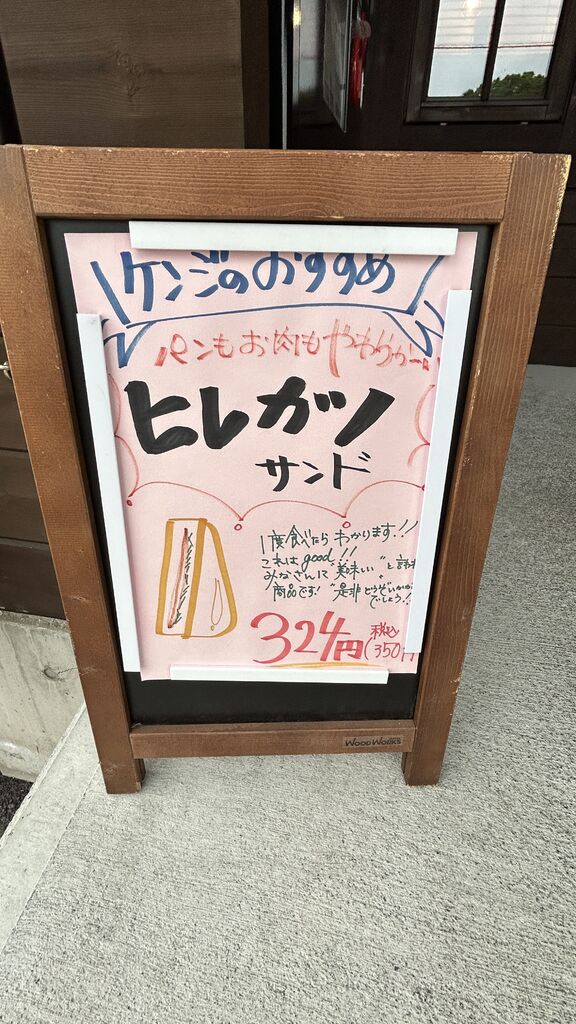 ケンジのおすすめ
パンもお肉もやわらか
ヒレカツ
サンド
1度食べたらわかります!!
これはgood!!
みなさんに"美味い"と言
商品です!"是非どうぞいかが
でしょう!
324円(税込
350円
WOODWORKS